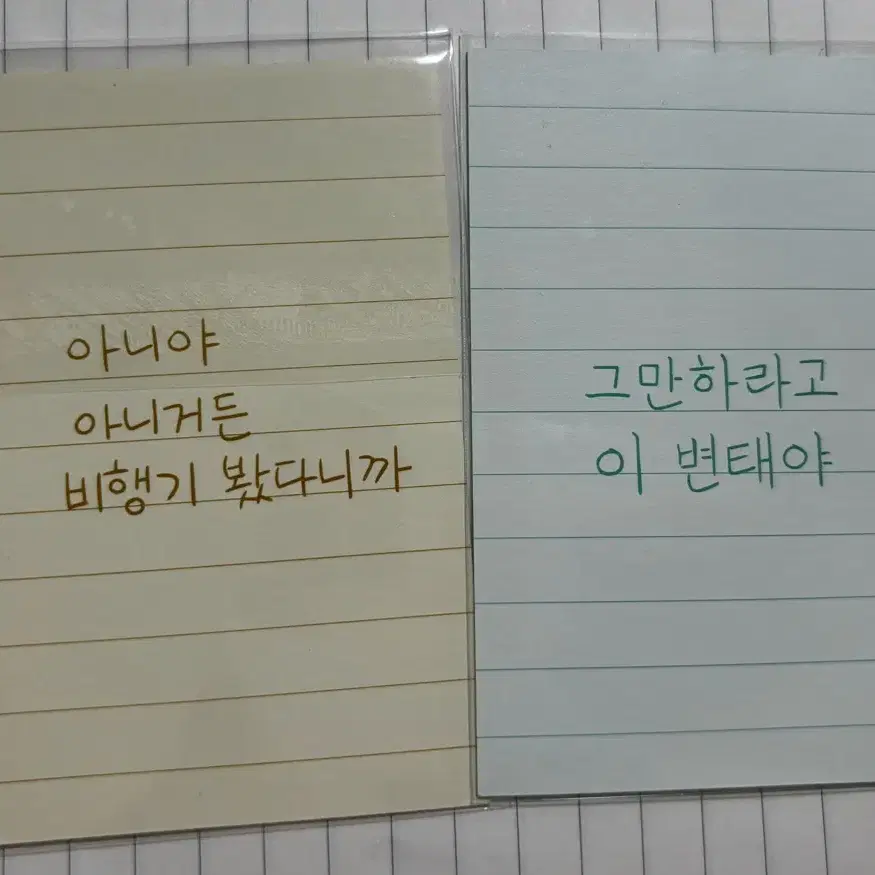 아니야
아니거든
비행기 봤다니까
그만하라고
이 변태야